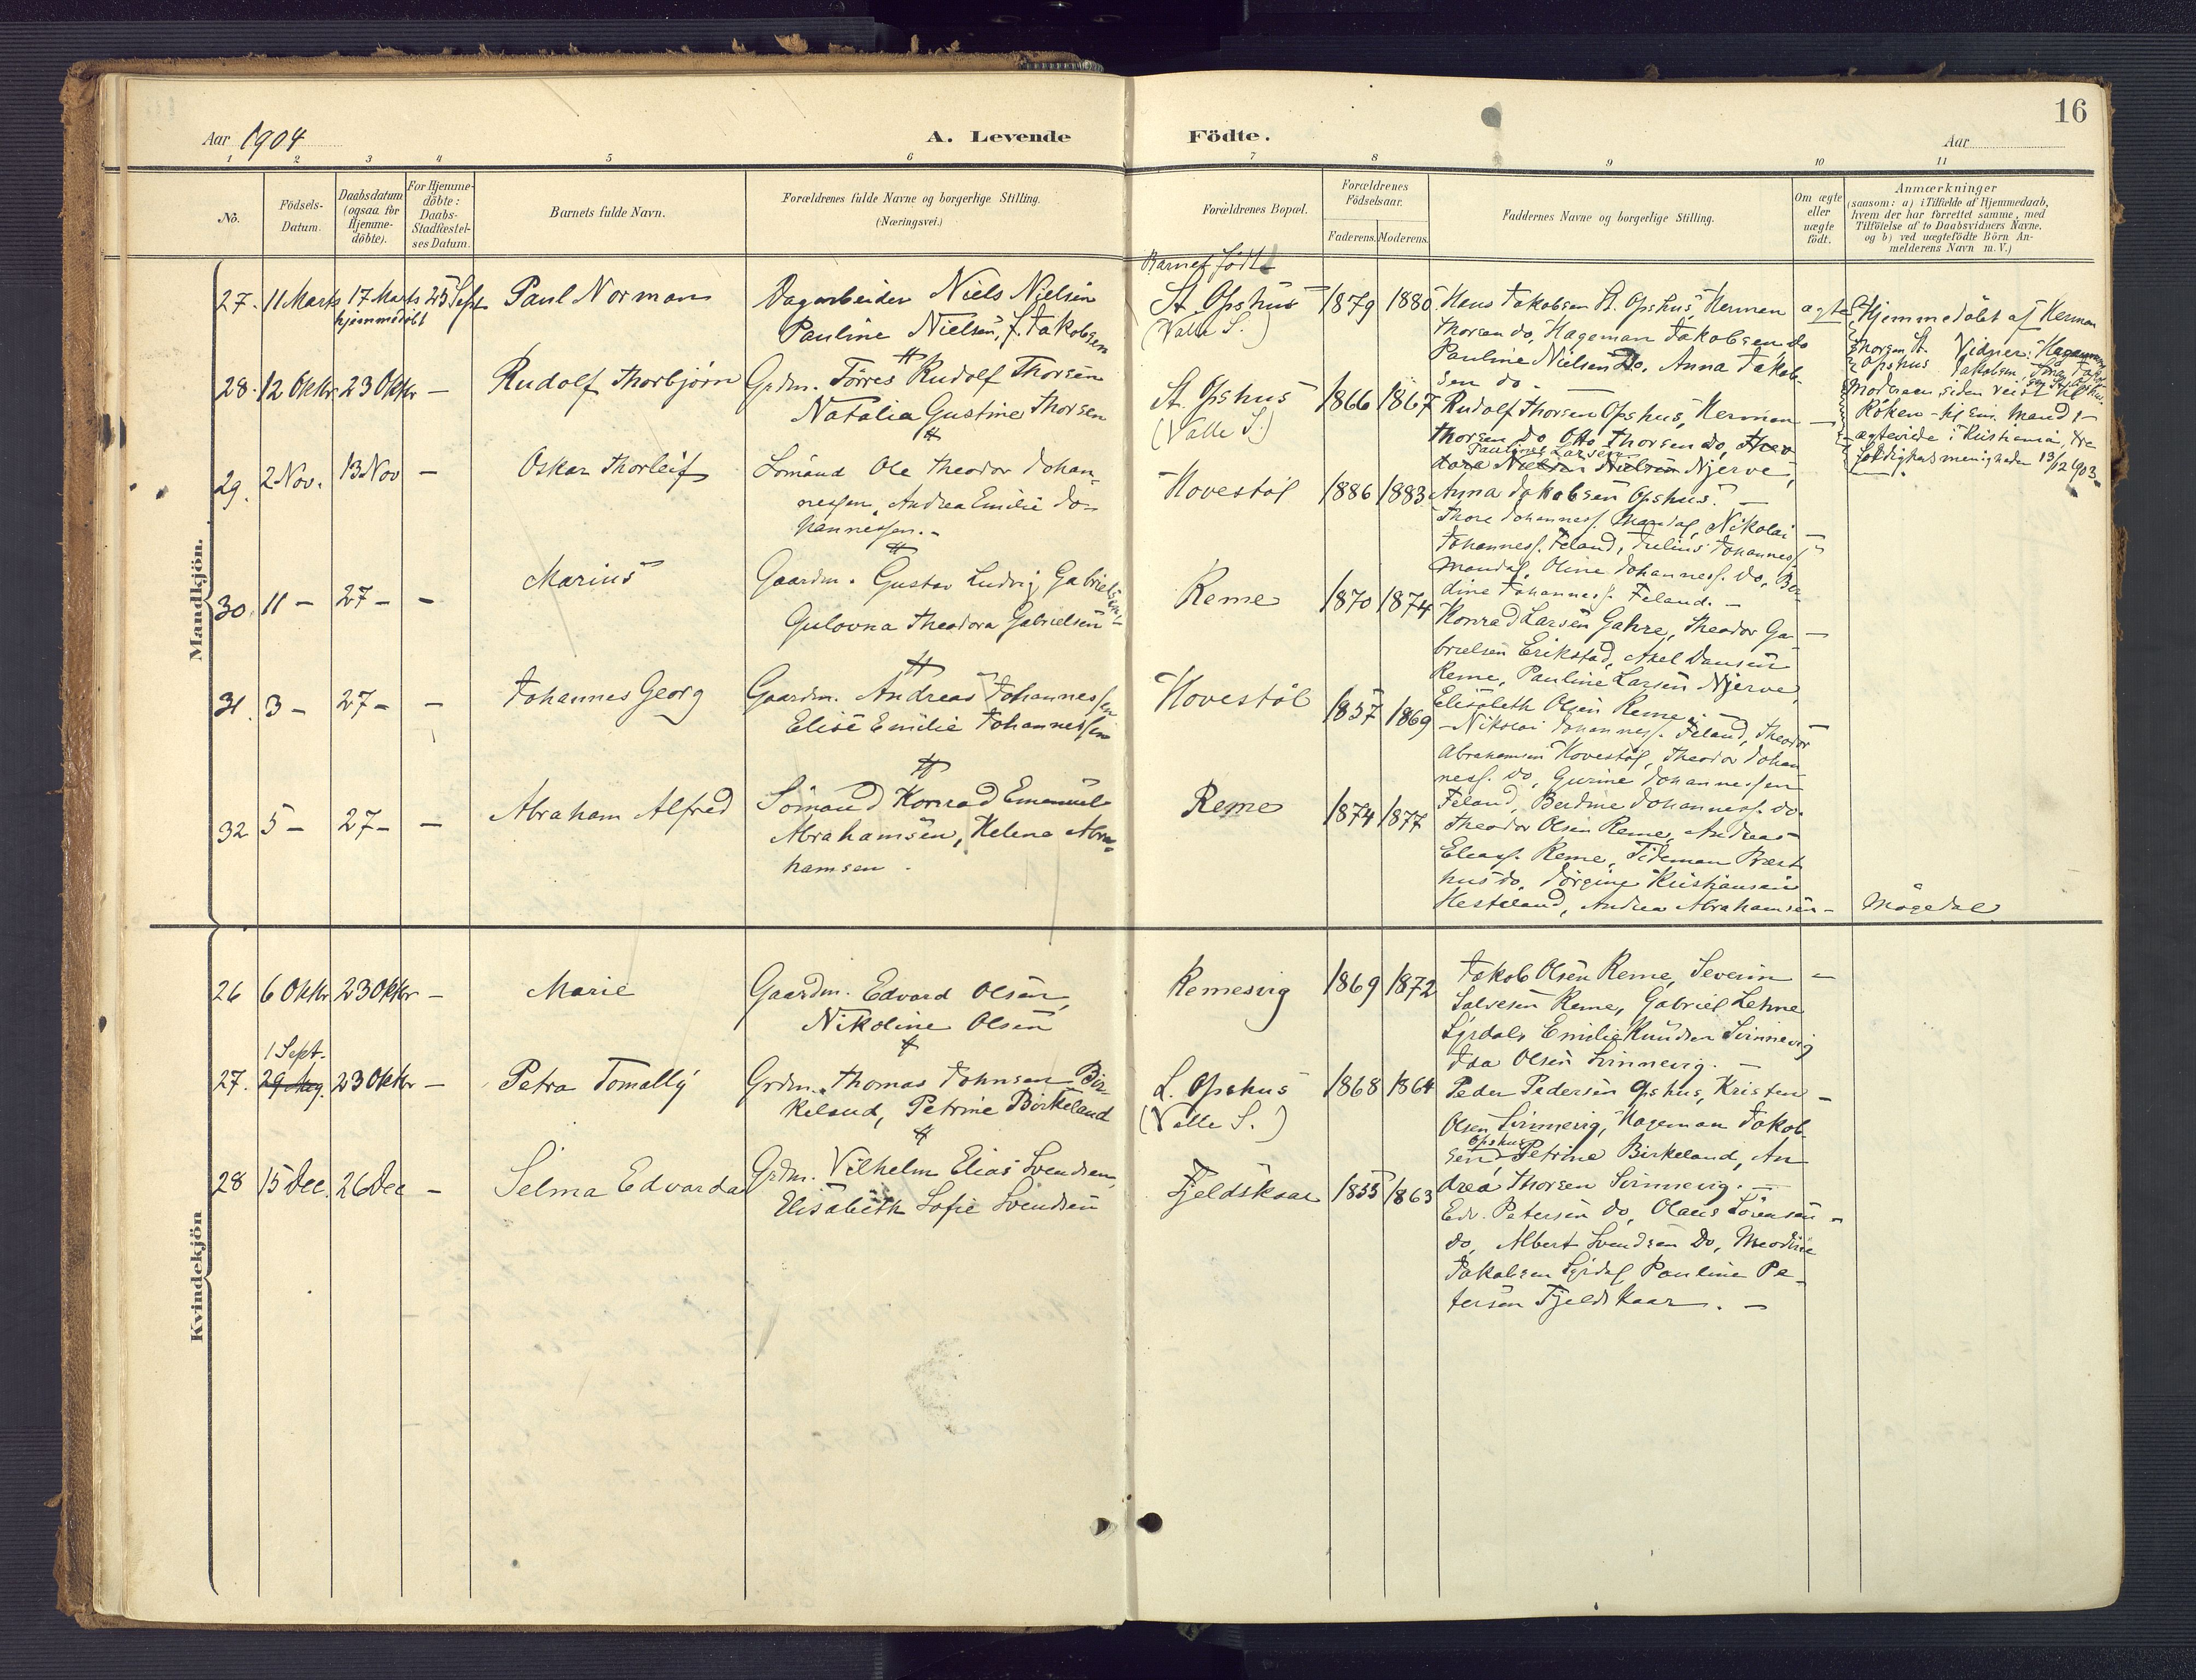 16
Aar 1904
A. Levende Födte.
Aar
1 2 3 4 5 6 7 8 9 10 11
No.
Födsels-
Datum.
Daabsdatum
(ogsaa for
Hjemme-
döbte).
For Hjemme-
döbte:
Daabs-
Stadfæstel-
ses Datum.
Barnets fulde Navn.
Forældrenes fulde Navne og borgerlige Stilling.
(Næringsvei.)
Forældrenes Bopæl.
Forældrenes
Födselsaar.
Faderens. Moderens.
Faddernes Navne og borgerlige Stilling.
Om ægte
eller
uægte
födt.
Anmærkninger
(saasom: a) i Tilfælde af Hjemmedaab,
hvem der har forrettet samme, med
Tilföielse af to Daabsvidners Navne,
og b) ved uægtefödte Börn An-
melderens Navn m. V.)
Mandkjön.
27. 11 Marts 17 Marts 25 Sept
hjemmedöbt
Paul Norman
Dagarbeider Niels Nielsen
Pauline Nielsen, f. Jakobsen
Barnet födt
St. Opshus
(Valle S.)
1879 1880
Hans Jakobsen St. Opshus, Herman
Thorsen do, Hageman Jakobsen do
Pauline Nielsen do, Anna Jakob-
sen do.
ægte
Hjemmedöbt af Herman
Thorsen St. Vidner: Hageman
Opshus Jakobsen
Moderen siden reist til
Röken til sin Mand
ægteviede i Kristiania, Tre
foldighedsmenigheden 13/12 1903.
28. 12 Oktbr 23 Oktbr —
Rudolf Thorbjörn
Grdm. Törres Rudolf Thorsen
Natalia Gustine Thorsen
St. Opshus
(Valle S.)
1866 1867
Rudolf Thorsen Opshus, Herman —
Thorsen do, Otto Thorsen do,
Pauline Larsen
Njerve,
Anna Jakobsen Opshus. —
29. 2 Nov. 13 Nov —
Oskar Thorleif
Sömand Ole Theodor Johan-
nessen, Andrea Emilie Jo-
hannessen. -
Hovestöl
1886 1883
Thore Johanness. Mandal, Nikolai —
Johanness. Feland, Julius Johanness.
Mandal, Oline Johanness. do, Ber-
dine Johanness. Feland. —
30. 11 - 27 - -
Marius
Gaardm. Gustav Ludvig Gabrielsen
Gulovna Theodora Gabrielsen
Reme
1870 1874
Konrad Larsen Gahre, Theodor Ga- —
brielsen Erikstad, Axel Dausen
Reme, Pauline Larsen Njerve,
Elisabeth Olsen Reme. —
31. 3 - 27 - -
Johannes Georg
Gaardm. Andreas Johannessen
Elise Emilie Johannessen
Hovestöl
1857 1869
Nikolai Johanness. Feland, Theodor
Abrahamsen Hovestöl, Theodor Johan-
ness. do, Gurine Johannessen
Feland, Berdine Johanness. do.
32 5 - 27 - -
Abraham Alfred
Sömand Konrad Emanuel
Abrahamsen, Helene Abra-
hamsen.
Reme
1874 1877
Theodor Olsen Reme, Andreas
Eliass. Reme, Tideman Præst
hus do, Jörgine Kristiansen
Hesteland, Andrea Abrahamsen -
Mögedal
Kvindekjön
26 6 Oktbr 23 Oktbr -
Marie
Gaardm. Edvard Olsen,
Nikoline Olsen
Remesvig
1869 1872
Jakob Olsen Reme, Severin -
Salvesen Reme, Gabriel Lehne
Syrdal, Emilie Knudsen Svinnevig
Ida Olsen Svinnevig. —
27. 1 Sept. 29 Aug. 23 Oktbr -
Petra Tomelly
Grdm. Thomas Johnsen Bir-
keland, Petrine Birkeland
L. Opshus
(Valle S.)
1868 1864
Peder Pedersen Opshus, Kristen -
Olsen Svinnevig, Hageman Jakob-
sen Opshus Petrine Birkeland, An
drea Thorsen Svinnevig. —
28 15 Dec. 26 Dec -
Selma Edvarda
Grdm. Vilhelm Elias Svendsen,
Elisabeth Sofie Svendsen
Fjeldskaar
1855 1863
Edv. Petersen do, Olaus Sörensen -
do, Albert Svendsen do, Meodine
Jakobsen Syrdal Pauline Pe-
tersen Fjeldskaar. —